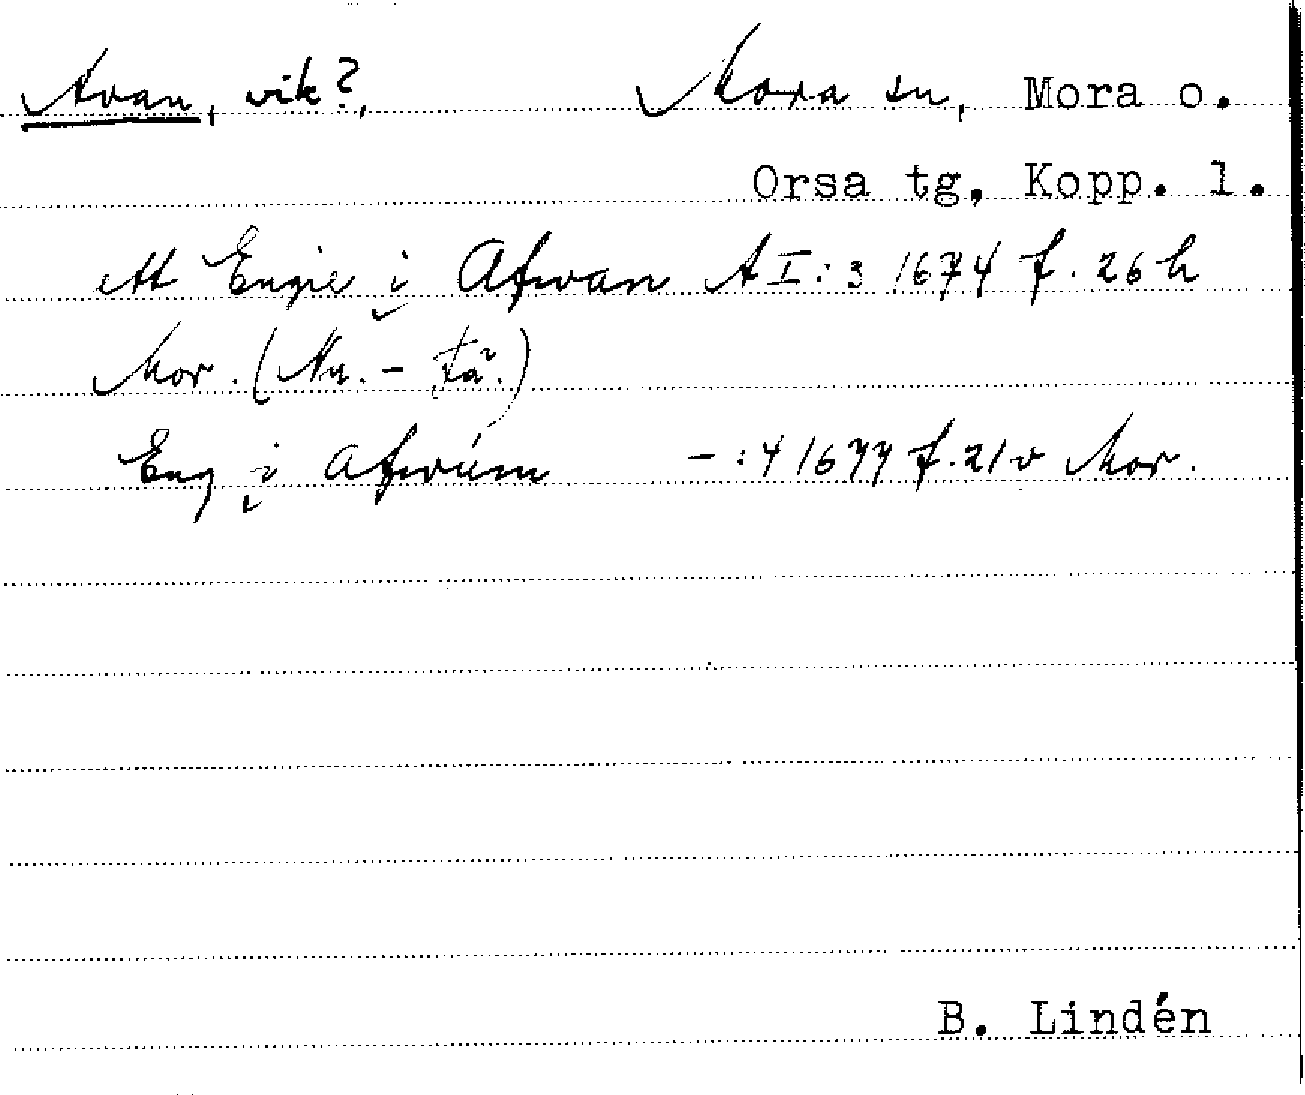 Avan, vik?, Mora sn, Mora o.
Orsa tg, Kopp. l.
ett Engie i Afwan A I:3 1674 f. 26 h
Mor. (Nu. - tä.)
Eng i Afwúm - :4 1677 f. 21 v Mor.
B. Lindén